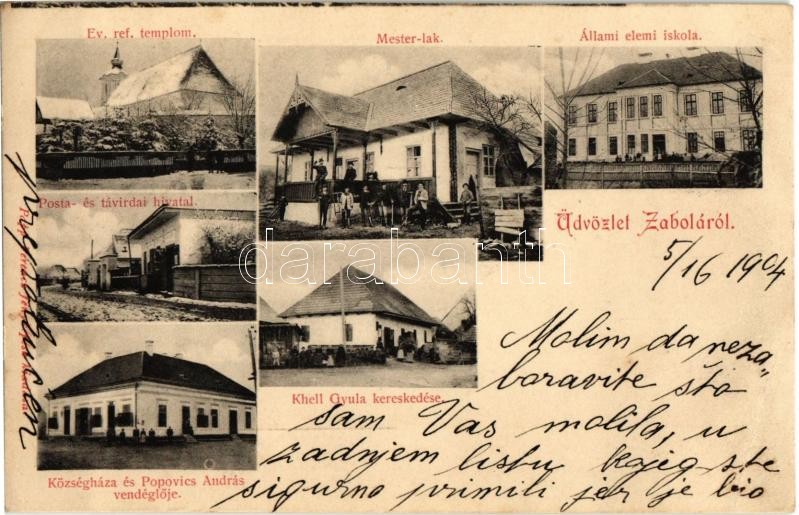 Ev. ref. templom.
Mester-lak.
Állami elemi iskola.
Posta- és távirdai hivatal.
Üdvözlet Zaboláról.
darabanth
5/16 1904
Khell Gyula kereskedése.
Községháza és Popovics András
vendéglője.
Molim da neza„
boravite što
sam Vas molila, u
zadnjem listu kojeg ste
sigurno primili jer je bio